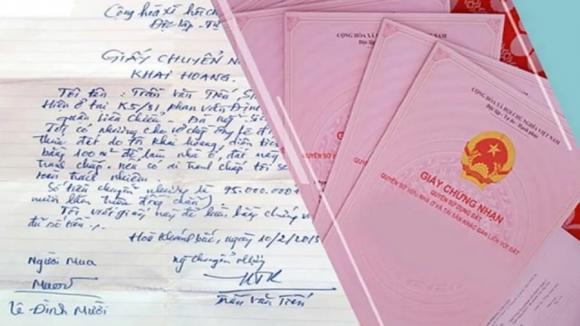 Cộng hòa xã hội ch
Độc lập - Tự
GIẤY CHUYỂN N
KHAI HOANG.
Tôi tên : Trần Văn Tiến
Hiện ở tại K5/31, phan văn Định
quận liên chiểu - Đà nẵng
Tôi có nhượng cho vợ chồng ông Lê Đ
thửa đất do tôi khai hoang, diện tích
bằng 100 m² để làm nhà ở, đất này
tranh chấp, nếu có ai tranh chấp tôi
toàn trách nhiệm.
Số tiền chuyển nhượng là 95.000.000
mươi lăm triệu đồng chẵn)
Tôi viết giấy này để làm bằng chứng
đủ số tiền.
Hoà khánh bắc, ngày 10/2/2015
Người Mua chuyển nhượng
Mười
Lê Đình Mười Trần Văn Tiến
CỘNG HÒA XÃ HỘI CHỦ NGHĨA VIỆT NAM
Độc lập - Tự do - Hạnh phúc
CỘNG HÒA XÃ HỘI CHỦ NGHĨA VIỆT NAM
Độc lập - Tự do - Hạnh phúc
GIẤY CHỨNG NHẬN
QUYỀN SỬ DỤNG ĐẤT
QUYỀN SỞ HỮU NHÀ Ở VÀ TÀI SẢN KHÁC GẮN LIỀN VỚI ĐẤT